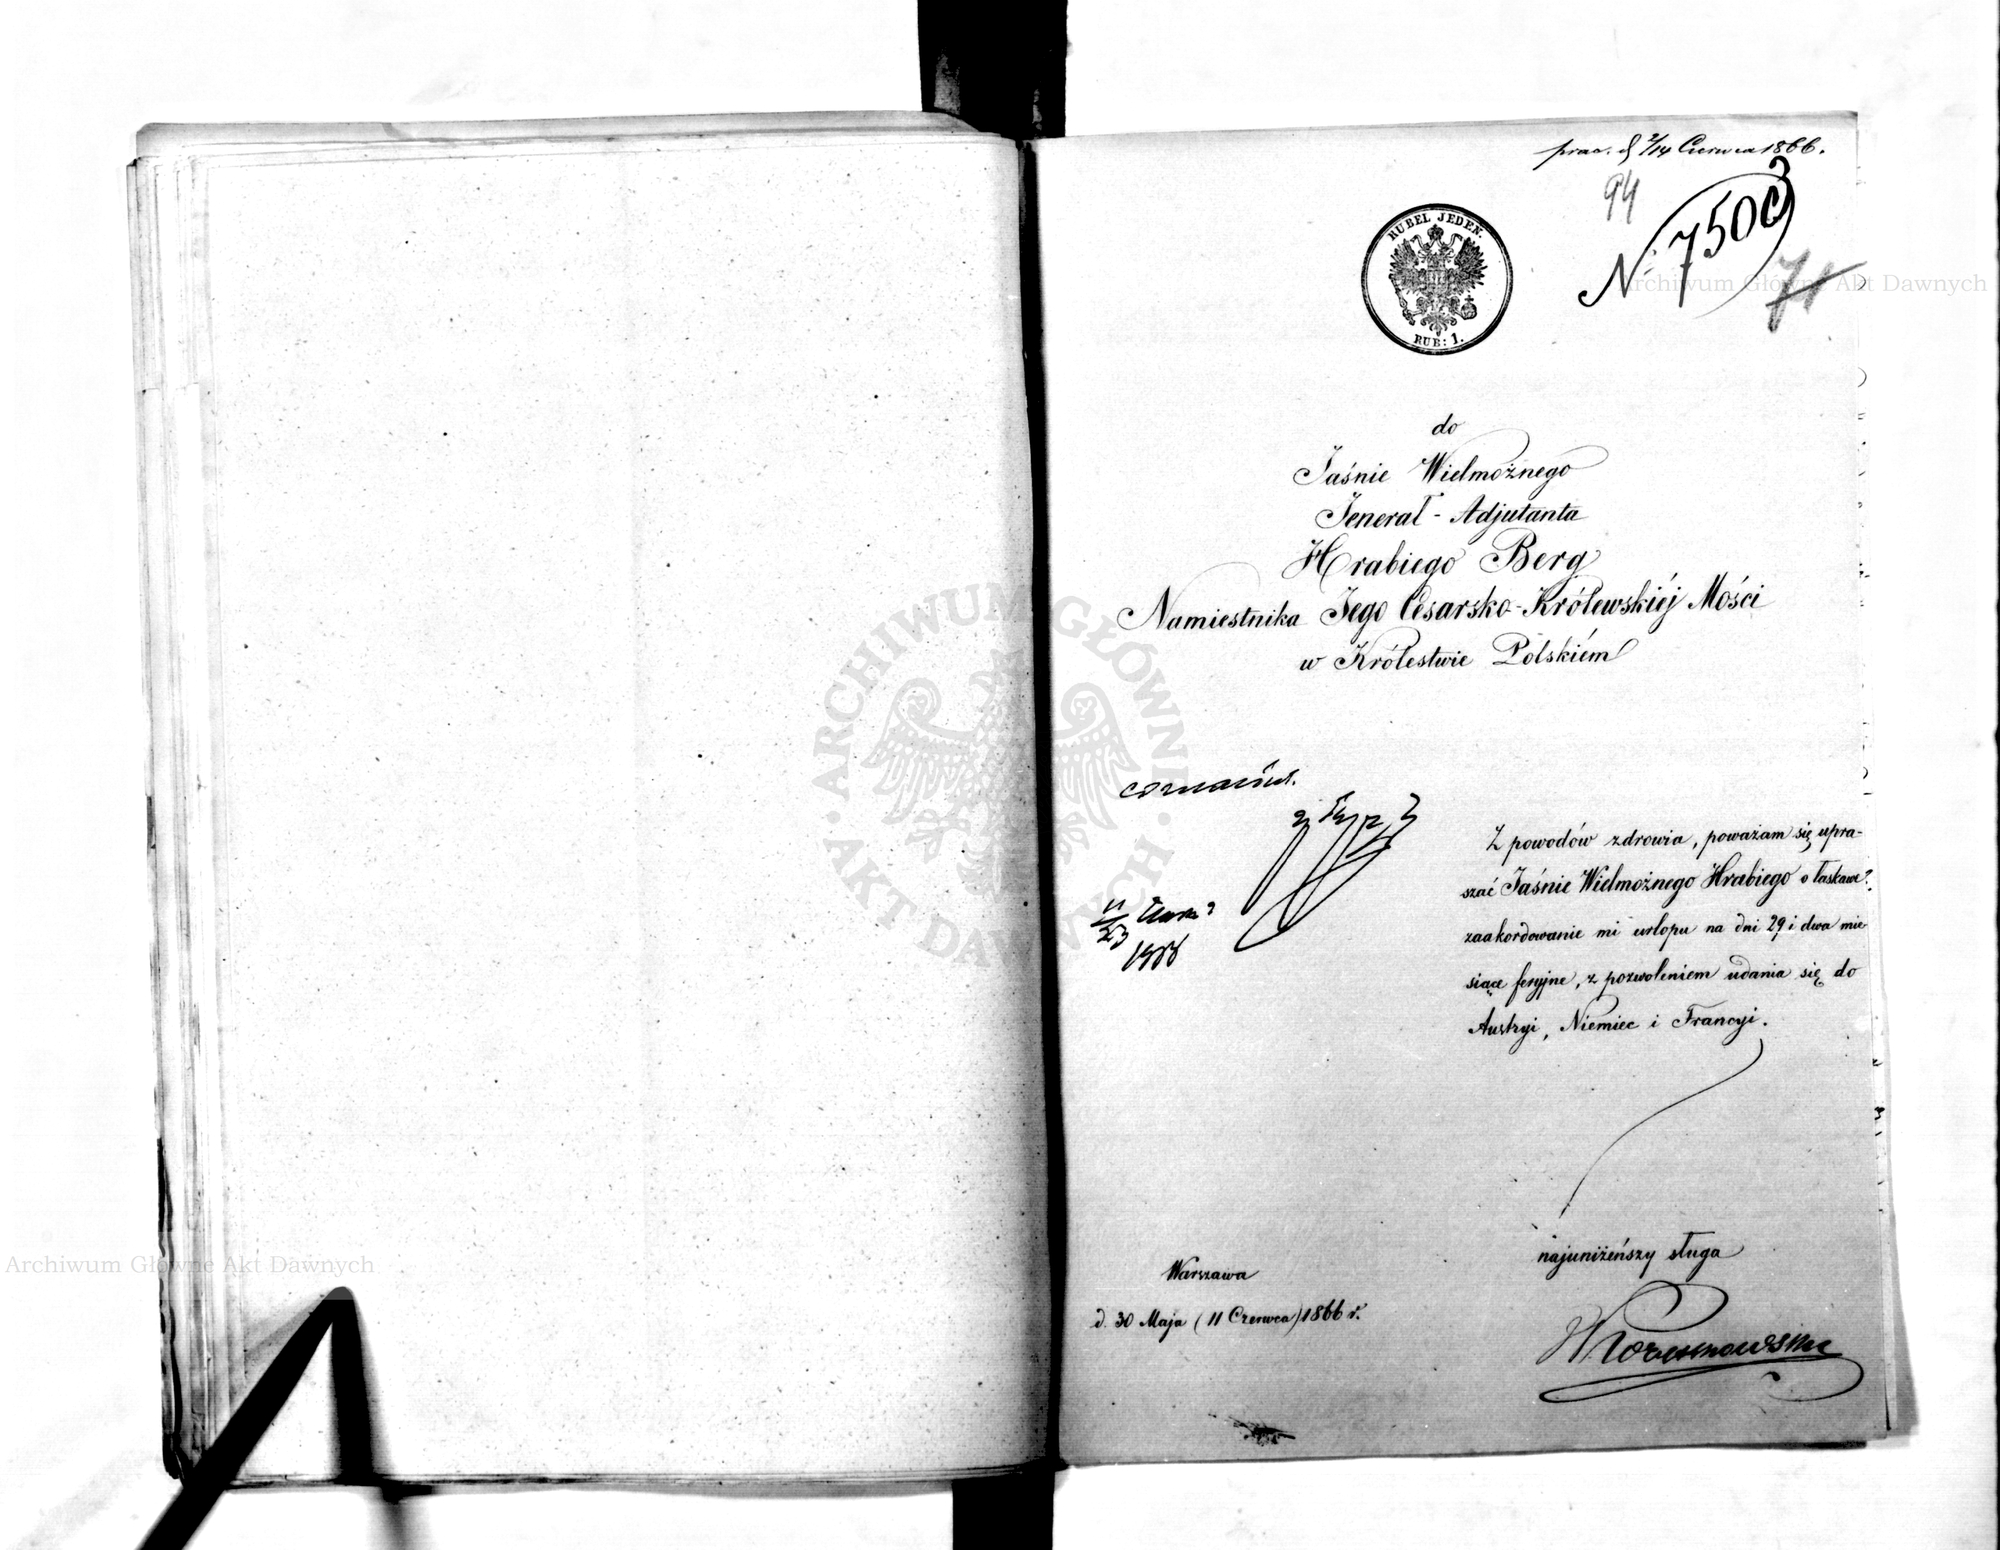 2/14 Czerwca 1866.
94
RUBEL JEDEN.
RUB: 1.
N: 7503
71
Archiwum Główne Akt Dawnych
do
Jaśnie Wielmożnego
Jenerał-Adjutanta
Hrabiego Berg
Namiestnika Jego Cesarsko-Królewskiéj Mości
w Królestwie Polskiém
ARCHIWUM GŁÓWNE · AKT DAWNYCH ·
согласенъ.
Z powodów zdrowia, poważam się upra-
szać Jaśnie Wielmożnego Hrabiego o łaskawe
zaakordowanie mi urlopu na dni 29 i dwa mie-
siące feryjne, z pozwoleniem udania się do
Austryi, Niemiec i Francyi.
11/23
1866
najuniżeńszy sługa
Archiwum Główne Akt Dawnych
Warszawa
d. 30 Maja (11 Czerwca) 1866 r.